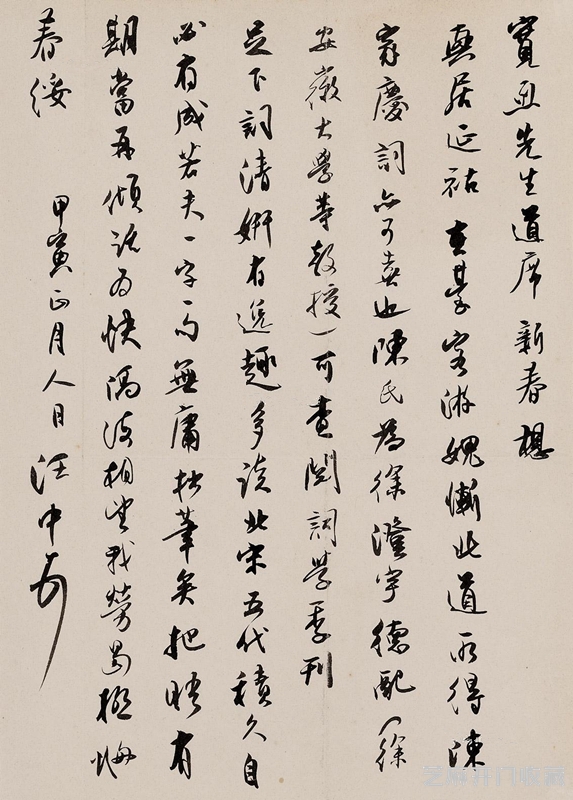 先生道席新春想
燕居延祜客游媿慚此道承得陳
家慶詞亦可喜也陳氏為徐澄宇德配（徐
安徽大學等教授）可查閱詞學季刊
足下詞清妍有逸趣多讀北宋五代積久自
必有成若夫一字一句無庸拈筆矣把晤有
期當再傾談為快相望我勞曷極
春綏 甲寅正月人日汪中
芝麻开门收藏